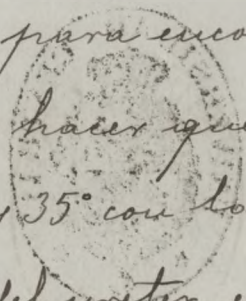 para enco
hacer que
35° con lo
del